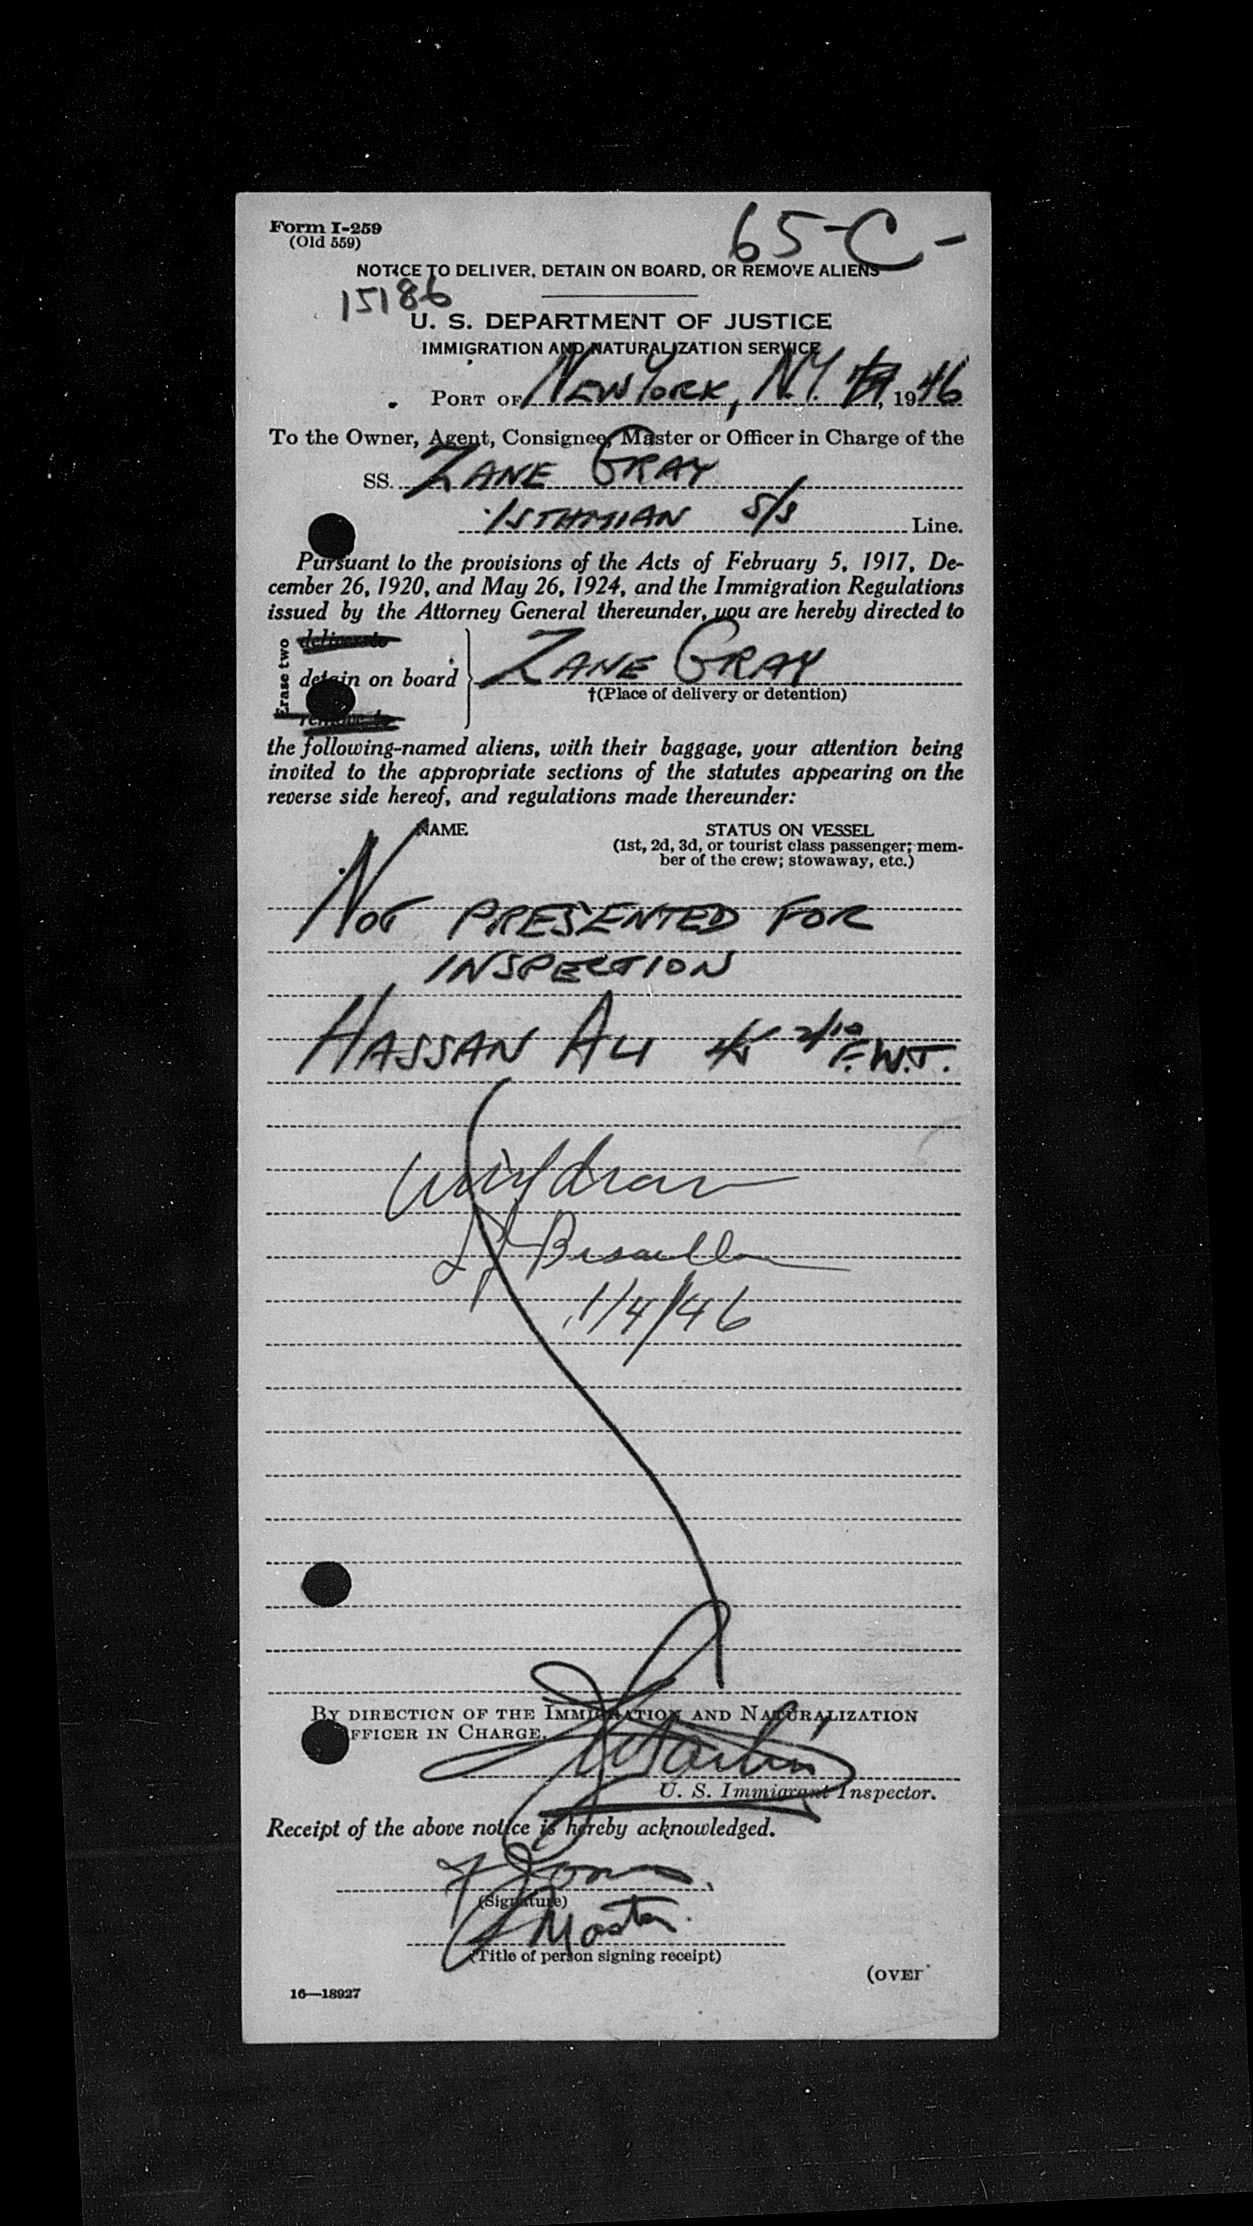 Form I-259
(Old 559)
65-C-
NOTICE TO DELIVER, DETAIN ON BOARD, OR REMOVE ALIENS
15186
U. S. DEPARTMENT OF JUSTICE
IMMIGRATION AND NATURALIZATION SERVICE
PORT OF NEW YORK, N.Y. , 1946
To the Owner, Agent, Consignee, Master or Officer in Charge of the
SS. ZANE GRAY
ISTHMIAN S/S Line.
Pursuant to the provisions of the Acts of February 5, 1917, De-
cember 26, 1920, and May 26, 1924, and the Immigration Regulations
issued by the Attorney General thereunder, you are hereby directed to
Erase two
deliver to
detain on board ZANE GRAY
†(Place of delivery or detention)
remove to
the following-named aliens, with their baggage, your attention being
invited to the appropriate sections of the statutes appearing on the
reverse side hereof, and regulations made thereunder:
NAME STATUS ON VESSEL
(1st, 2d, 3d, or tourist class passenger; mem-
ber of the crew; stowaway, etc.)
NOT PRESENTED FOR
INSPECTION
HASSAN ALI 2/10 F.W.T.
1/4/46
BY DIRECTION OF THE IMMIGRATION AND NATURALIZATION
OFFICER IN CHARGE.
U. S. Immigrant Inspector.
Receipt of the above notice is hereby acknowledged.
(Signature)
Master.
(Title of person signing receipt)
(OVER
16—18927